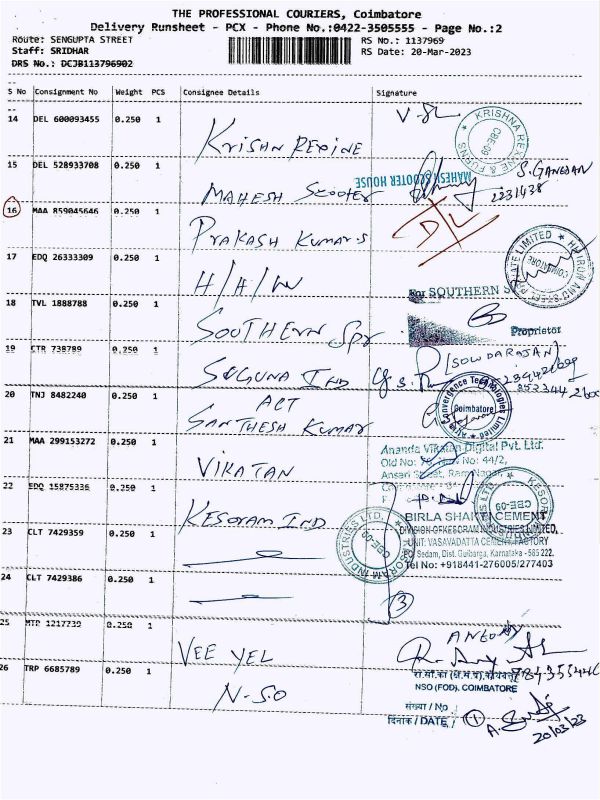 THE PROFESSIONAL COURIERS, Coimbatore
Delivery Runsheet - PCX - Phone No.:0422-3505555 - Page No.:2
Route: SENGUPTA STREET RS No.: 1137969
Staff: SRIDHAR RS Date: 20-Mar-2023
DRS No.: DCJB113796902
S No Consignment No Weight PCS Consignee Details Signature
14 DEL 600093455 0.250 1 KRISHN REXINE
KRISHNA REXINE & FURNS
CBE-09
15 DEL 528933708 0.250 1 MAHESH SCOOTER
MAHESH SCOOTER HOUSE
S. GANESAN
2231438
16 MAA 859045646 0.250 1 PRAKASH KUMAR.S
D/L
17 EDQ 26333309 0.250 1 H/H/W
PRIVATE LIMITED
COIMBATORE
18 TVL 1888788 0.250 1 SOUTHERN SPR
For SOUTHERN
Proprietor
19 CTR 738789 0.250 1 SUGUNA IND
[SOWDARAJAN]
20 TNJ 8482240 0.250 1 ACT
SANTHESH KUMAR
Convergence Technologies Limited
Coimbatore
21 MAA 299153272 0.250 1 VIKATAN
Ananda Vikatan Digital Pvt. Ltd.
Old No: No: 44/2,
22 EDQ 15875336 0.250 1 KESORAM IND
KESORAM INDUSTRIES LTD.
CBE-09
BIRLA SHAKTI CEMENT
DIVISION OF KESORAM INDUSTRIES LIMITED,
UNIT: VASAVADATTA CEMENT FACTORY
PO Sedam, Dist. Gulbarga, Karnataka - 585 222.
Tel No: +918441-276005/277403
23 CLT 7429359 0.250 1
24 CLT 7429386 0.250 1
3
25 MTP 1217739 0.250 1 VEE YEL
ANTONY
26 TRP 6685789 0.250 1 N.S.O
NSO (FOD), COIMBATORE
संख्या / No
दिनांक / DATE, 1
20/03/23